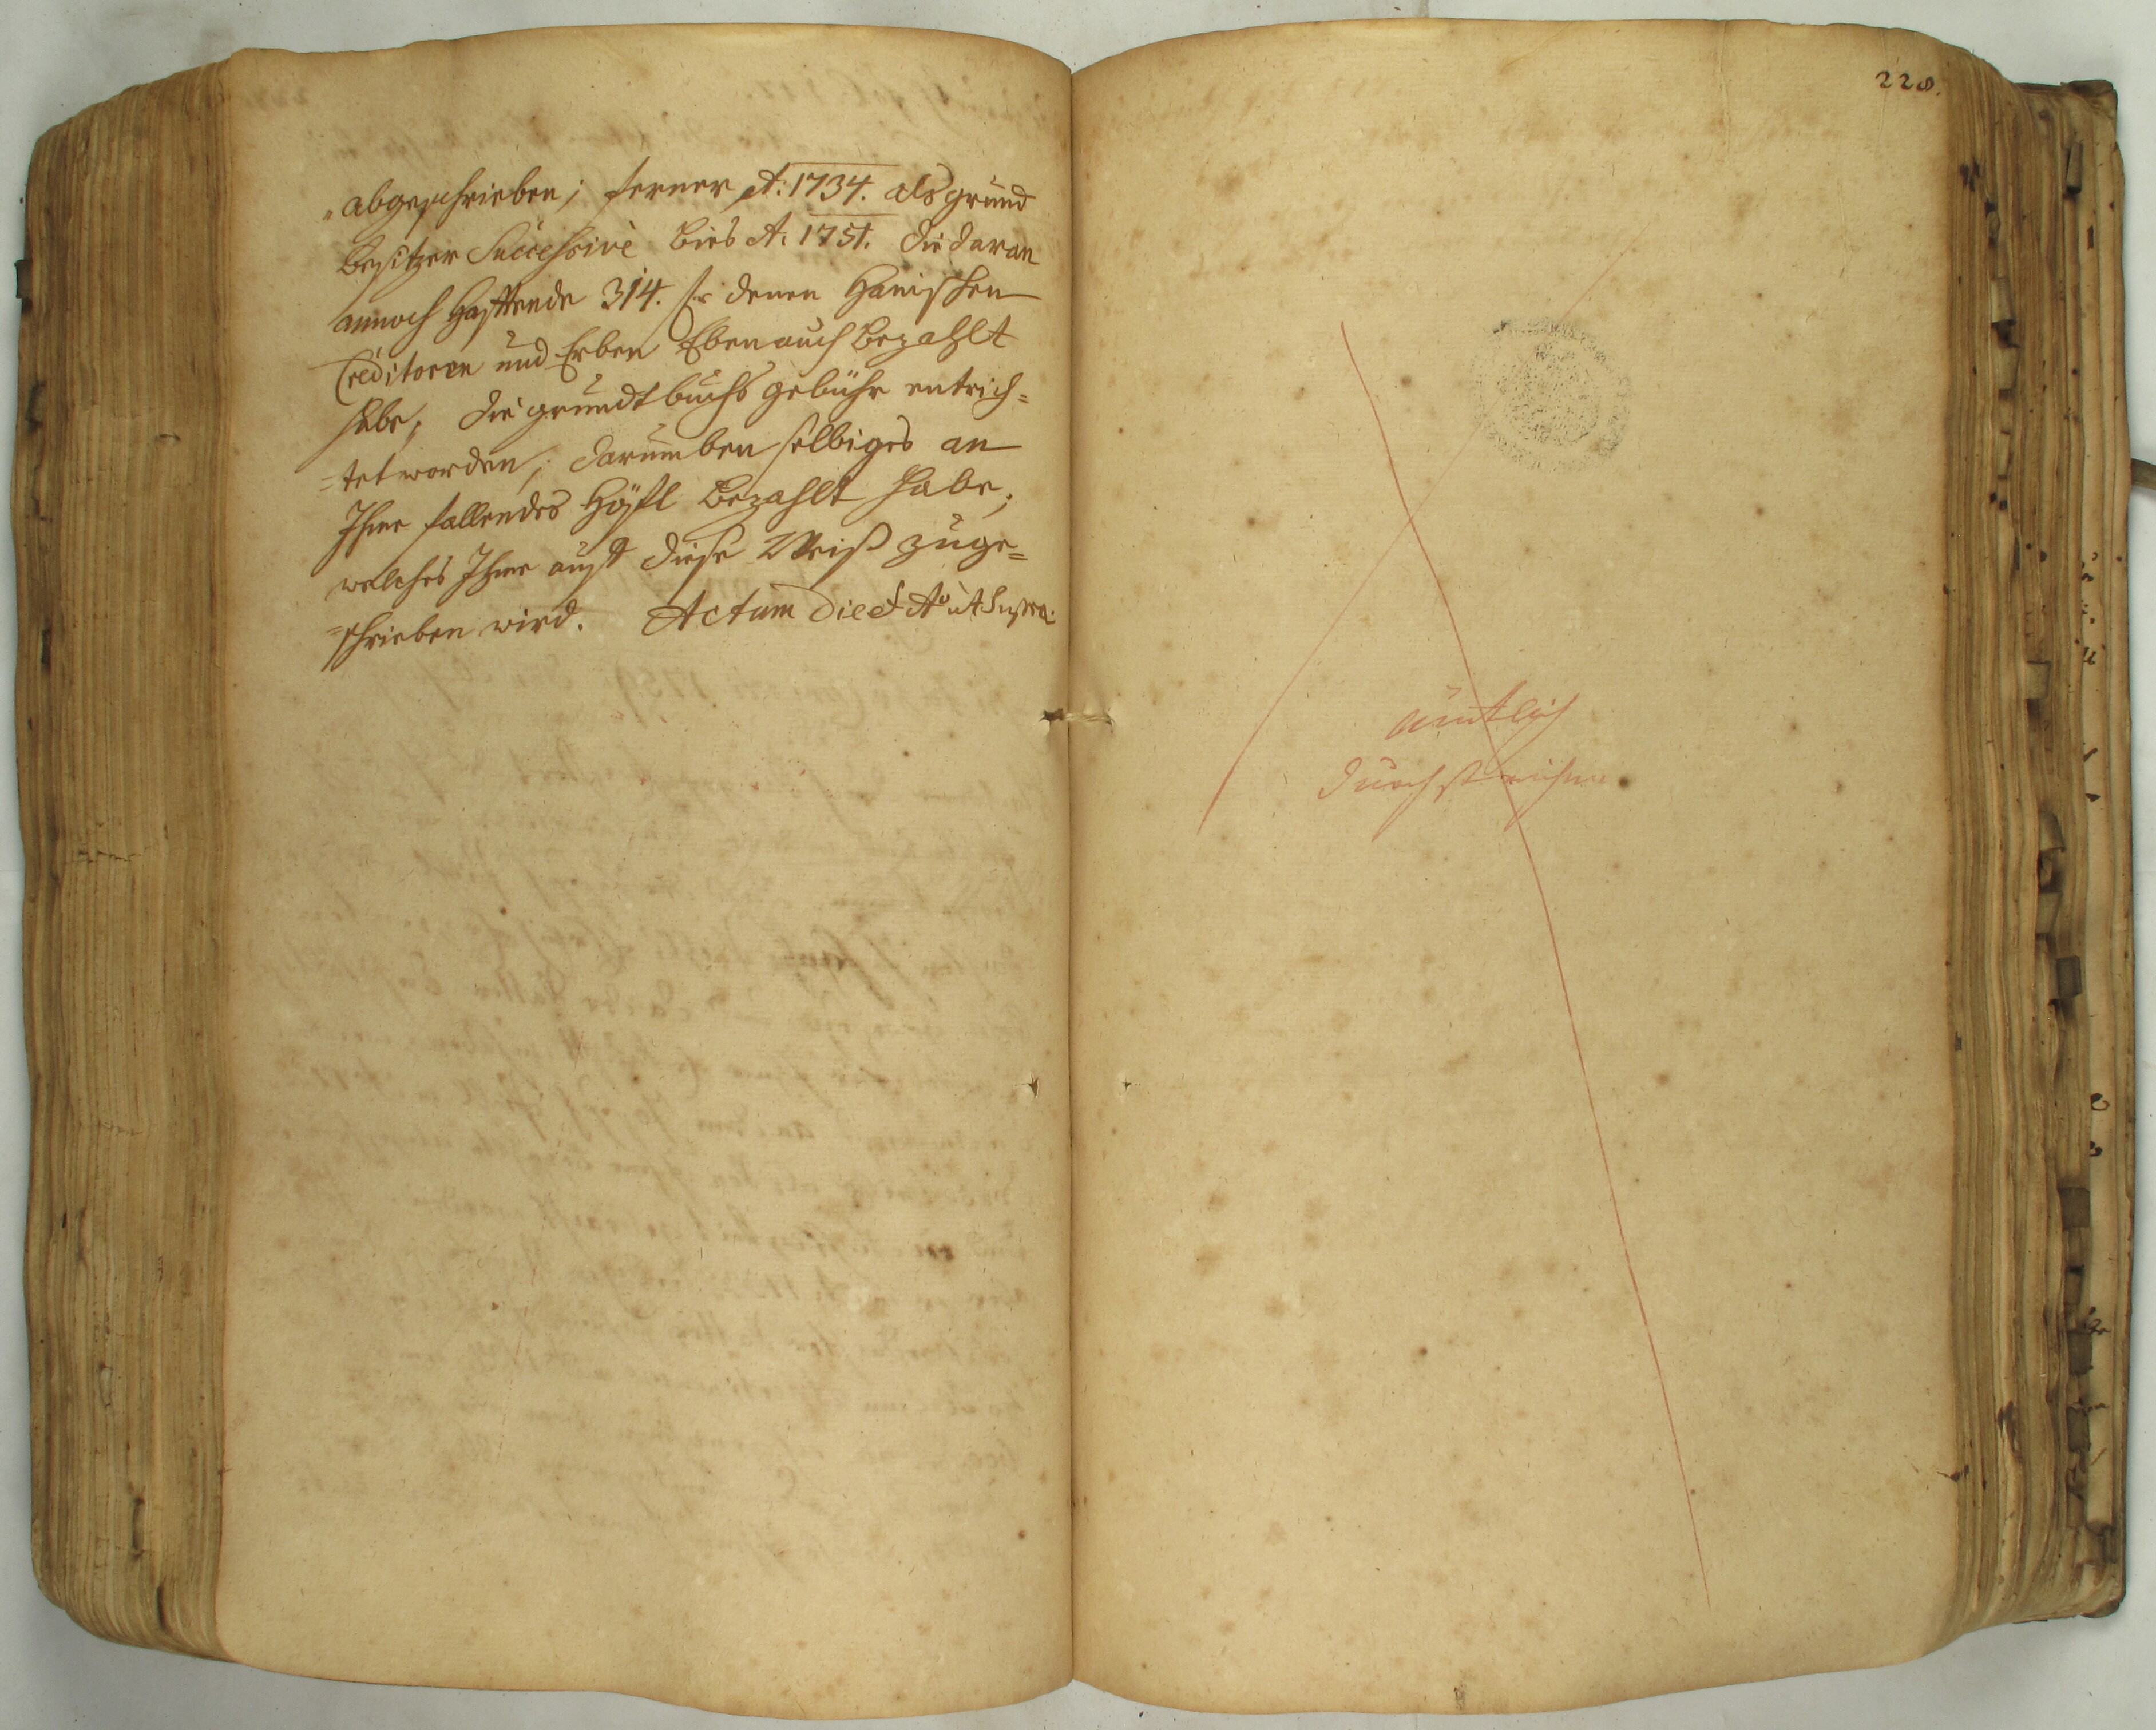 abgeschrieben; ferner A: 1734. als grund
besitzer Successivè bies A: 1751. die daran
annoch hafftende 314. fr denen Hanischen
Creditoren und Erben Eben auch bezahlt
habe; die grundtbuchs gebühr entrich=
=tet worden; darumben selbiges an
Ihme fallendes Höffl bezahlt habe;
welches Ihme auff diese Weiß zuge=
=schrieben wird. Actum Die et Aō ut supra.
228.
ämtlich
durchstrichen